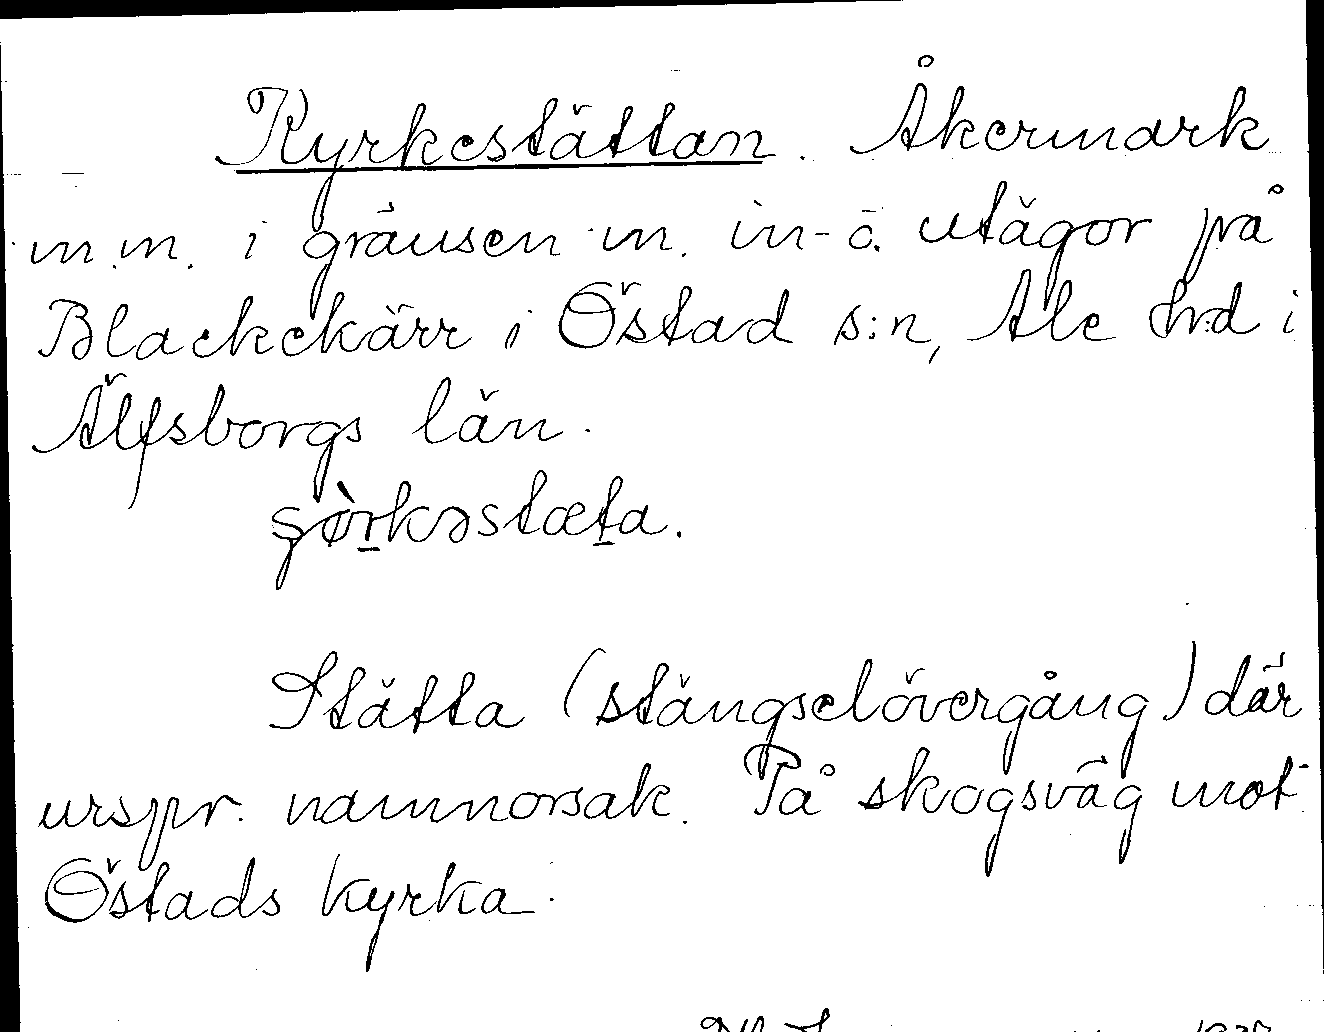 Kyrkestättan. Åkermark
m.m. i gränsen m. in- o. utägor på
Blackekärr i Östad s:n, Ale hrd i
Älfsborgs län.
şø̀rkəstæta.
Stätta (stängselövergång) där
urspr. namnorsak. På skogsväg mot
Östads kyrka.